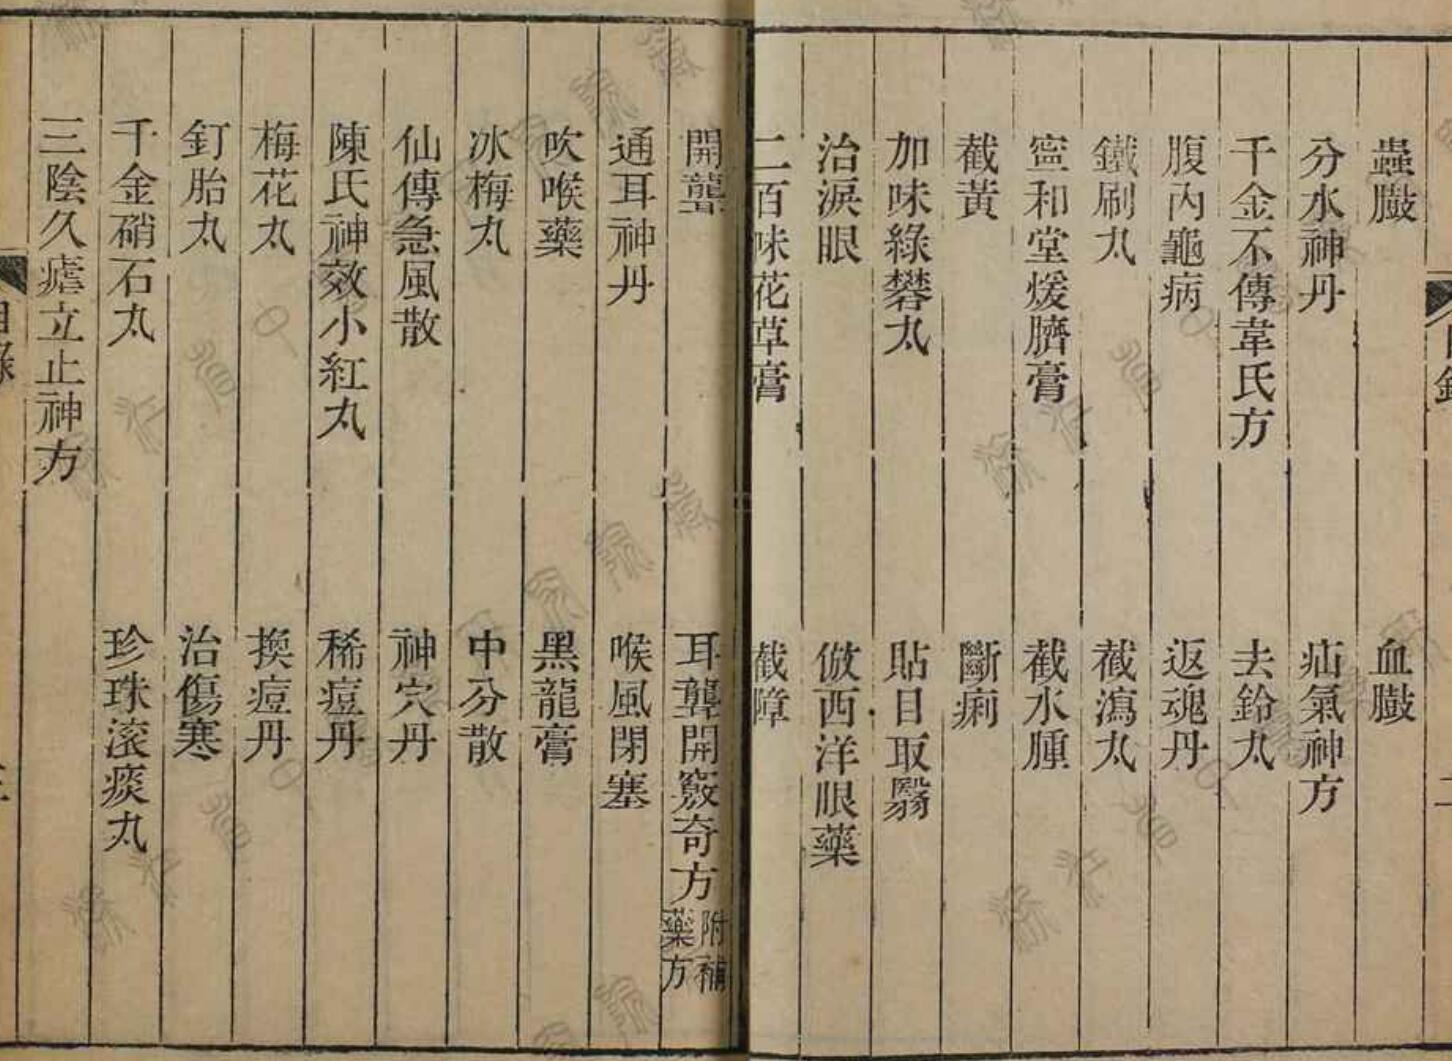 蠱臌
血臌
分水神丹
疝氣神方
千金不傳韋氏方
去鈴丸
腹內龜病
返魂丹
鐵刷丸
截瀉丸
寧和堂煖臍膏
截水腫
截黃
斷痢
加味綠礬丸
貼目取翳
治淚眼
倣西洋眼藥
二百味花草膏
截障
開聾
耳聾開竅奇方附補藥方
通耳神丹
喉風閉塞
吹喉藥
黑龍膏
冰梅丸
中分散
仙傳急風散
神穴丹
陳氏神效小紅丸
稀痘丹
梅花丸
換痘丹
釘胎丸
治傷寒
千金硝石丸
珍珠滾痰丸
三陰久瘧立止神方
目錄